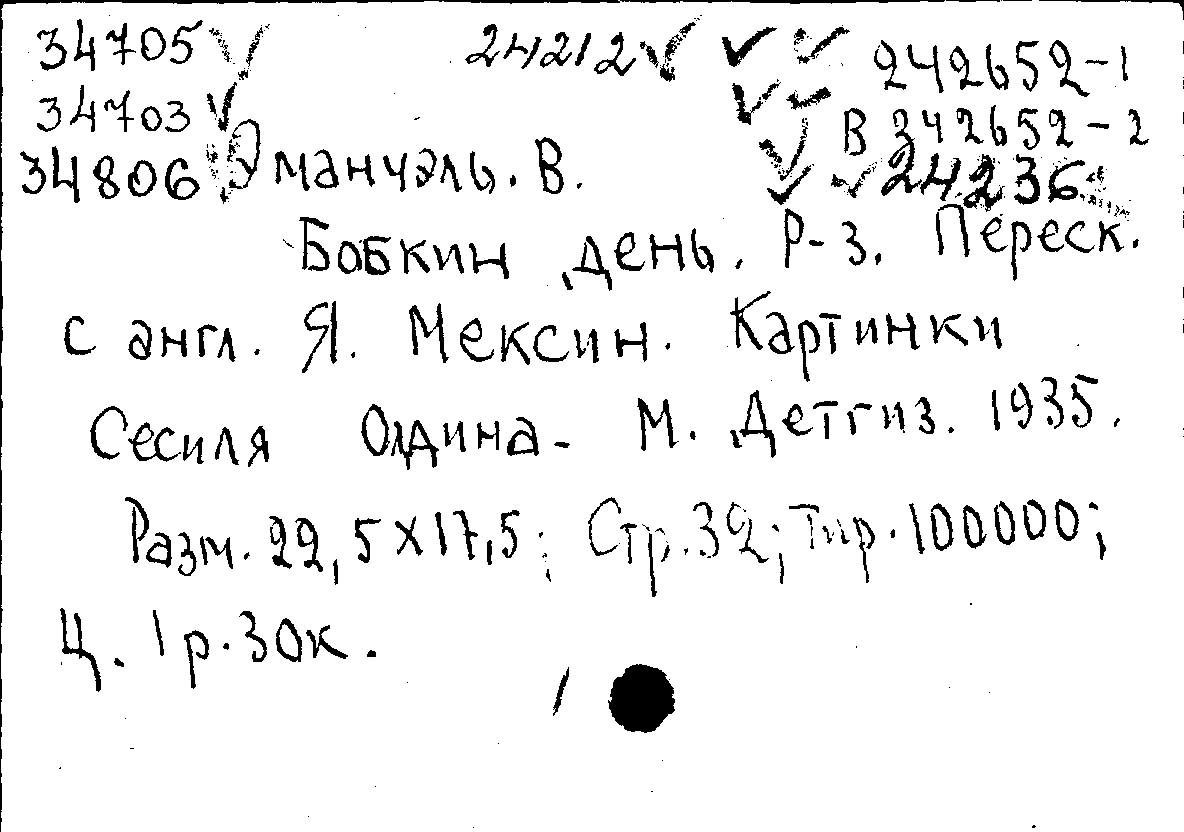 34705 24212 242652-1
34703 В 342652-2
34806 Эмануэль. В. 24236
Бобкин день. Р-з. Переск.
с англ. Я. Мексин. Картинки
Сесиля Олдина- М. Детгиз. 1935.
Разм. 22,5х17,5; Стр.32; Тир.100000;
Ц. 1р.30к.